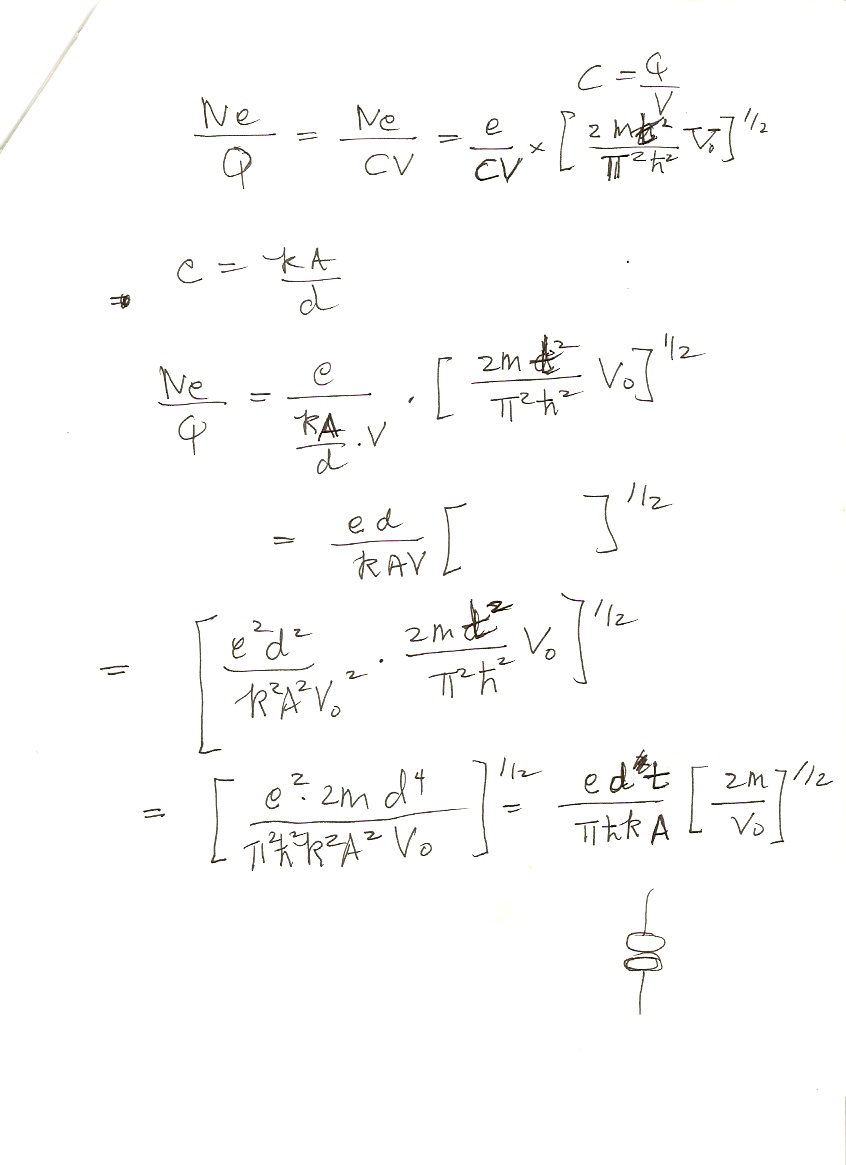 C = Q/V
Ne/Q = Ne/CV = e/CV × [2mt²/π²ħ² V₀]^1/2
⇒ C = kA/d
Ne/Q = e/(kA/d · V) · [2mt²/π²ħ² V₀]^1/2
= ed/kAV [ ]^1/2
= [e²d²/k²A²V₀² · 2mt²/π²ħ² V₀]^1/2
= [e²·2md⁴/π²ħ²k²A²V₀]^1/2 = edt/πħkA [2m/V₀]^1/2